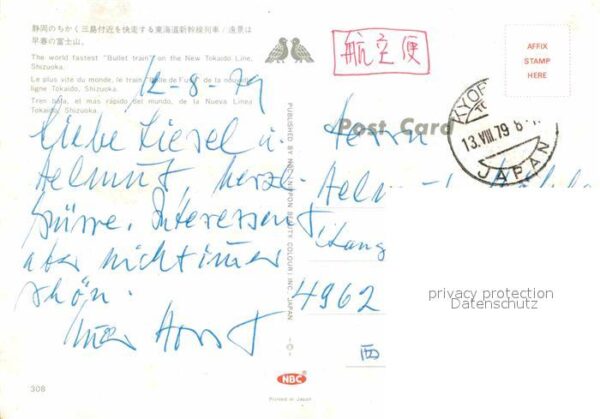 静岡のちかく三島付近を快走する東海道新幹線列車/遠景は
早春の富士山。
The world fastest "Bullet train" on the New Tokaido Line,
Shizuoka.
Le plus vite du monde, le train "Balle de Fusil" de la nouvelle
ligne Tokaido, Shizuoka.
Tren bala, el mas rápido del mundo, de la Nueva Linea
Tokaido, Shizuoka.
12-8-79
Liebe Liesel u.
Helmut, herzl.
Grüsse. Interessant
aber nicht immer
schön.
Euer Horst
308
PUBLISHED BY NBC: NIPPON BEAUTY COLOUR INC. JAPAN
NBC
Printed in Japan
航空便
Post Card
AFFIX
STAMP
HERE
KYO
13.VIII.79
JAPAN
Herrn
4962
西
privacy protection
Datenschutz